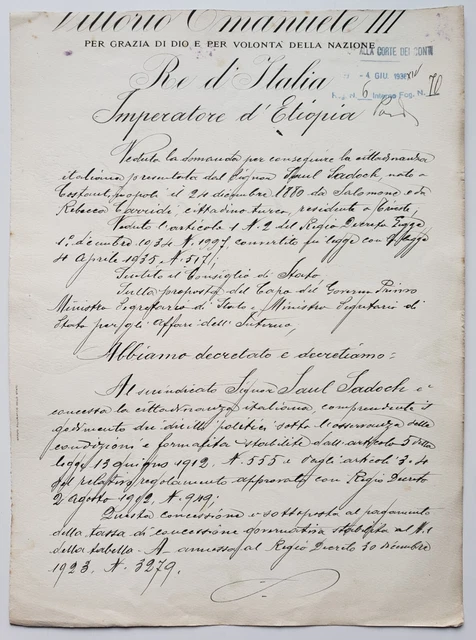 Vittorio Emanuele III
PER GRAZIA DI DIO E PER VOLONTÀ DELLA NAZIONE
ALLA CORTE DEI CONTI
Re d'Italia
4 GIU. 1936
N. 6 Interno Fog. N. 70
Imperatore d'Etiopia
Veduta la domanda per conseguire la cittadinanza
italiana presentata dal Signor Saul Sadoch, nato a
Costantinopoli il 24 dicembre 1889 da Salomone e da
Rebecca, cittadino turco, residente a Trieste;
Veduto l'articolo 1 N. 2 del Regio Decreto Legge
1° dicembre 1934 N. 1997 convertito in legge con Legge
4 Aprile 1935 N. 517;
Sentito il Consiglio di Stato,
Sulla proposta del Capo del Governo Primo
Ministro Segretario di Stato e Ministro Segretario di
Stato per gli Affari dell'Interno;
Abbiamo decretato e decretiamo:
Al surindicato Signor Saul Sadoch è
concessa la cittadinanza italiana, comprendente il
godimento dei diritti politici sotto l'osservanza delle
condizioni e formalità stabilite dall'articolo 5 della
legge 13 giugno 1912 N. 555 e dagli articoli 3-4
del relativo regolamento approvato con Regio Decreto
2 agosto 1912 N. 949.
Questa concessione è sottoposta al pagamento
della tassa di concessione governativa stabilita al N. 1
della tabella A annessa al Regio Decreto 30 dicembre
1923 N. 3279.